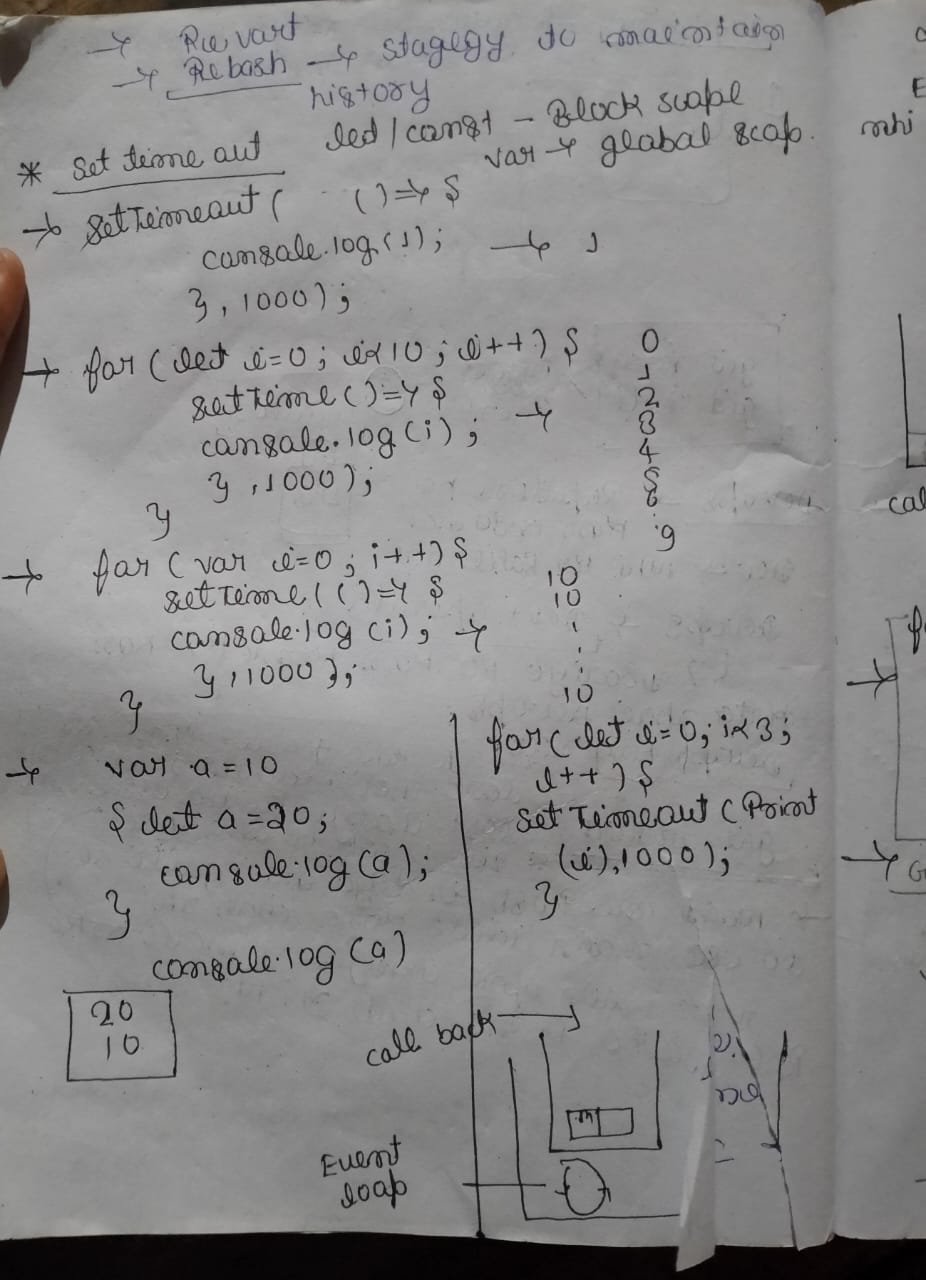 → Revart
→ Rebash → stagegy to maintain
history
led / const - Block scope
* Set time out var → global scop.
→ SetTimeout ( () => {
console.log(1); → 1
}, 1000);
→ for (let i=0; i<10; i++) {
settime () => {
console.log(i); →
}, 1000);
}
0
1
2
3
4
5
6
9
→ for (var i=0; i++) {
setTime(() => {
console.log(i); →
}, 1000);
}
10
10
10
→ var a = 10
{ let a = 20;
console.log(a);
}
console.log(a)
20
10
for( let i=0; i<3;
i++) {
Set Timeout (Print
(i), 1000);
}
call back
Event
loop
mhi
cal
G